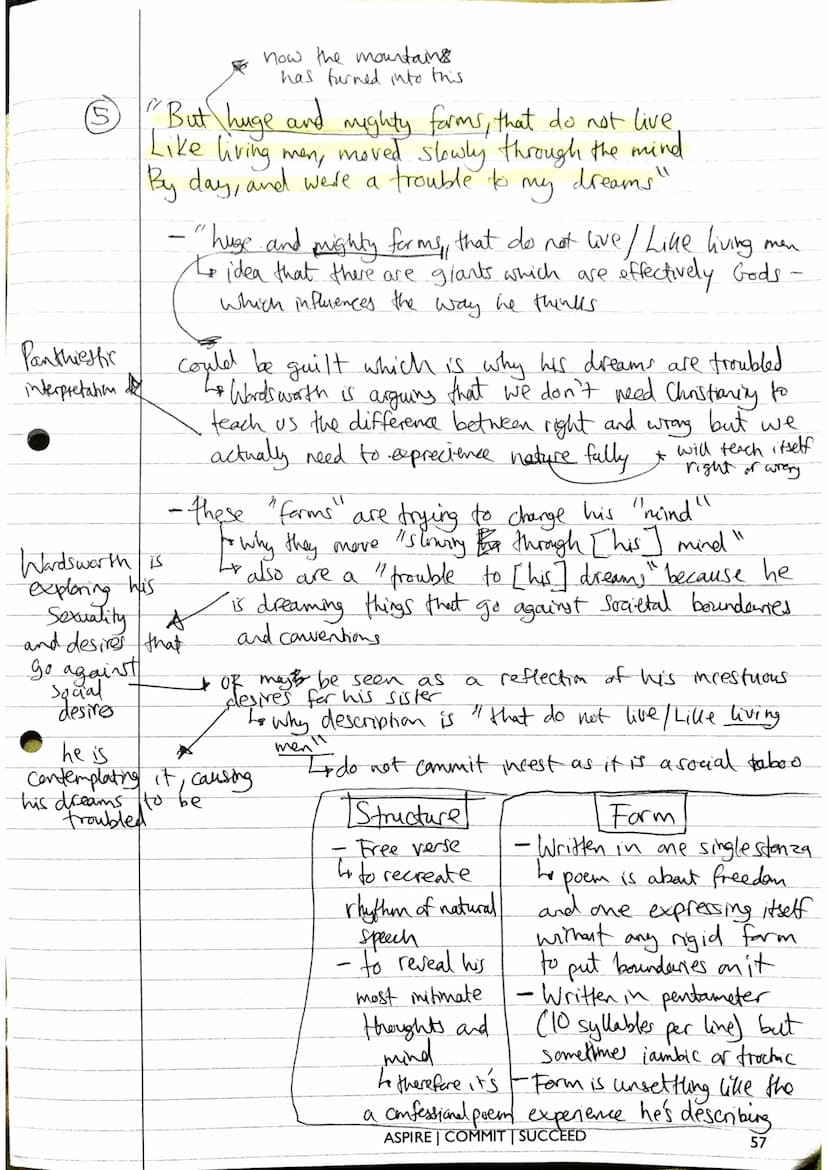 now the mountains
has turned into this
5
"But huge and mighty forms, that do not live
Like living men, moved slowly through the mind
By day, and were a trouble to my dreams"
- "huge and mighty forms, that do not live / Like living men
↳ idea that there are giants which are effectively Gods -
which influences the way he thinks
Panthiestic
interpretation
could be guilt which is why his dreams are troubled
↳ Wordsworth is arguing that we don't need Christianity to
teach us the difference between right and wrong but we
actually need to exprecience nature fully
will teach itself
right or wrong
- these "forms" are trying to change his "mind"
↳ why they move "slowing through [his] mind"
↳ also are a "trouble to [his] dreams" because he
is dreaming things that go against societal boundaries
and conventions
Wordsworth is
exploring his
sexuality
and desires that
go against
social
desires
↳ OR may be seen as a reflection of his incestuous
desires for his sister
↳ why description is "that do not live / Like living
men"
↳ do not commit incest as it is a social taboo
he is
contemplating it, causing
his dreams to be
troubled
Structure
- Free verse
↳ to recreate
rhythm of natural
speech
- to reveal his
most intimate
thoughts and
mind
↳ therefore it's
a confessional poem
Form
- Written in one single stanza
↳ poem is about freedom
and one expressing itself
without any rigid form
to put boundaries on it
- Written in pentameter
(10 syllables per line) but
sometimes iambic or trochic
- Form is unsettling like the
experience he's describing
ASPIRE | COMMIT | SUCCEED
57